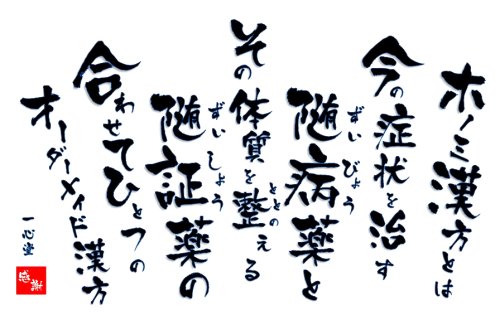 ホノミ漢方とは
今の症状を治す
随病薬と
ずいびょう
その体質を整える
ととの
随証薬の
ずいしょう
合わせてひとつの
オーダーメイド漢方
一心堂
感謝